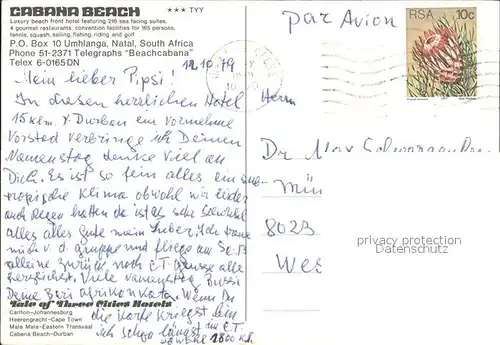 CABANA BEACH ★★★ TYY
Luxury beach front hotel featuring 216 sea facing suites,
4 gourmet restaurants, convention facilities for 165 persons,
tennis, squash, sailing, fishing, riding and golf
P.O. Box 10 Umhlanga, Natal, South Africa
Phone 51-2371 Telegraphs "Beachcabana"
Telex 6-0165DN
12.10.79
Mein lieber Pipsi!
In diesem herrlichen Hotel
15 klm. v. Durban ein vornehme
Vorstad verbringe ich Deinen
Namenstag denke viel an
Dich. Es ist so fein alles ein
tropische Klima obwohl wir leider
auch Regen hatten da ist es sehr
alles alles Gute mein Lieber. Ich
mich v. d. gruppe und fliege am
alleine zurück, noch C.T. Grüsse alle
herzlichst. Viele namenstag Bussi
Deine
Wenn Du
die Karte kriegst bin
ich schon längst in C.T.
Tale of Three Cities Hotels
Carlton-Johannesburg
Heerengracht-Cape Town
Mala Mala-Eastern Transvaal
Cabana Beach-Durban
par Avion
RSA 10c
Herrn
Dr Max
Mün
8023
Wes
PRIVACY PROTECTION
Datenschutz